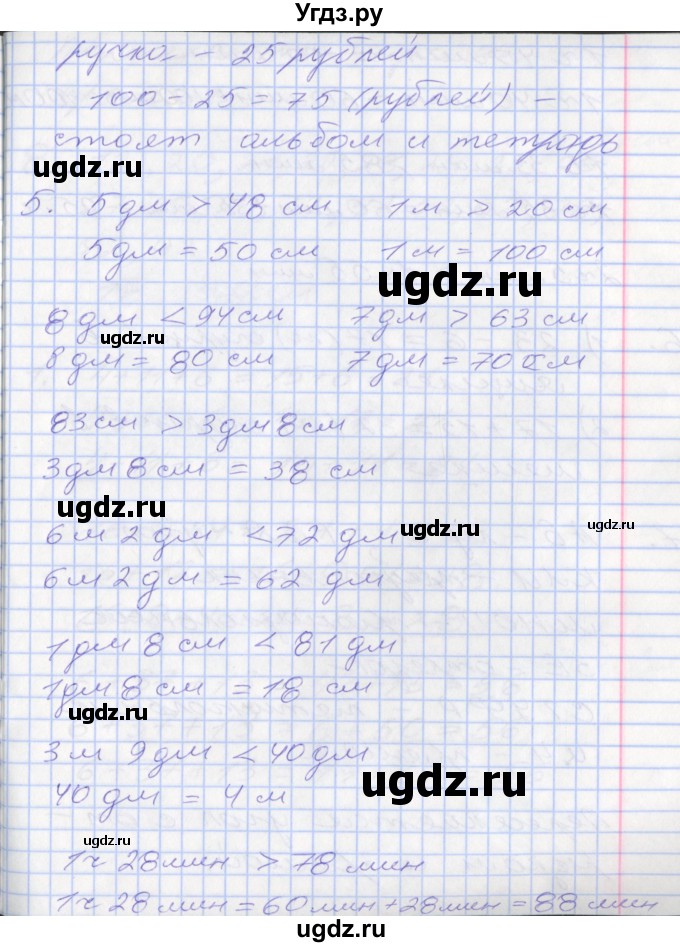 Угдз.ру
ручка - 25 рублей
100 - 25 = 75 (рублей) -
стоят альбом и тетрадь
ugdz.ru
5. 5 дм > 48 см 1 м > 20 см
5 дм = 50 см 1 м = 100 см
ugdz.ru
8 дм < 94 см 7 дм > 63 см
ugdz.ru
8 дм = 80 см 7 дм = 70 см
83 см > 3 дм 8 см
3 дм 8 см = 38 см
ugdz.ru
6 м 2 дм < 72 дм
ugdz.ru ugdz.ru
6 м 2 дм = 62 дм
1 дм 8 см < 81 дм
1 дм 8 см = 18 см
ugdz.ru
3 м 9 дм < 40 дм
ugdz.ru
40 дм = 4 м
ugdz.ru
1 ч 28 мин > 78 мин
1 ч 28 мин = 60 мин + 28 мин = 88 мин